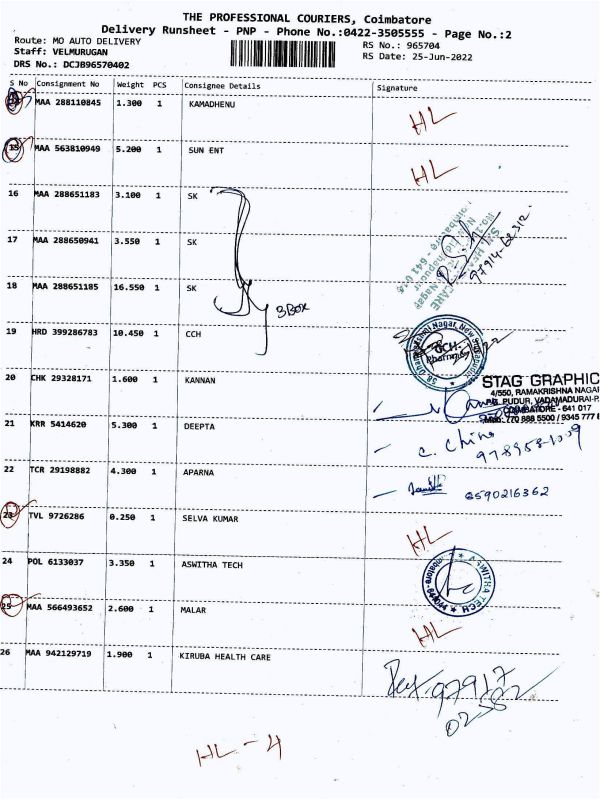 THE PROFESSIONAL COURIERS, Coimbatore
Delivery Runsheet - PNP - Phone No.:0422-3505555 - Page No.:2
Route: MO AUTO DELIVERY
Staff: VELMURUGAN
DRS No.: DCJB96570402
RS No.: 965704
RS Date: 25-Jun-2022
S No Consignment No Weight PCS Consignee Details Signature
14 MAA 288110845 1.300 1 KAMADHENU HL
15 MAA 563810949 5.200 1 SUN ENT HL
16 MAA 288651183 3.100 1 SK
17 MAA 288650941 3.550 1 SK
18 MAA 288651185 16.550 1 SK
3 BOX
19 HRD 399286783 10.450 1 CCH
20 CHK 29328171 1.600 1 KANNAN
STAG GRAPHIC
4/550, RAMAKRISHNA NAGAR
P.G. PUDUR, VADAMADURAI-P.
COIMBATORE - 641 017
21 KRR 5414620 5.300 1 DEEPTA
22 TCR 29198882 4.300 1 APARNA 8590216362
23 TVL 9726286 0.250 1 SELVA KUMAR HL
24 POL 6133037 3.350 1 ASWITHA TECH
25 MAA 566493652 2.600 1 MALAR HL
26 MAA 942129719 1.900 1 KIRUBA HEALTH CARE
97917
02582
HL - 4